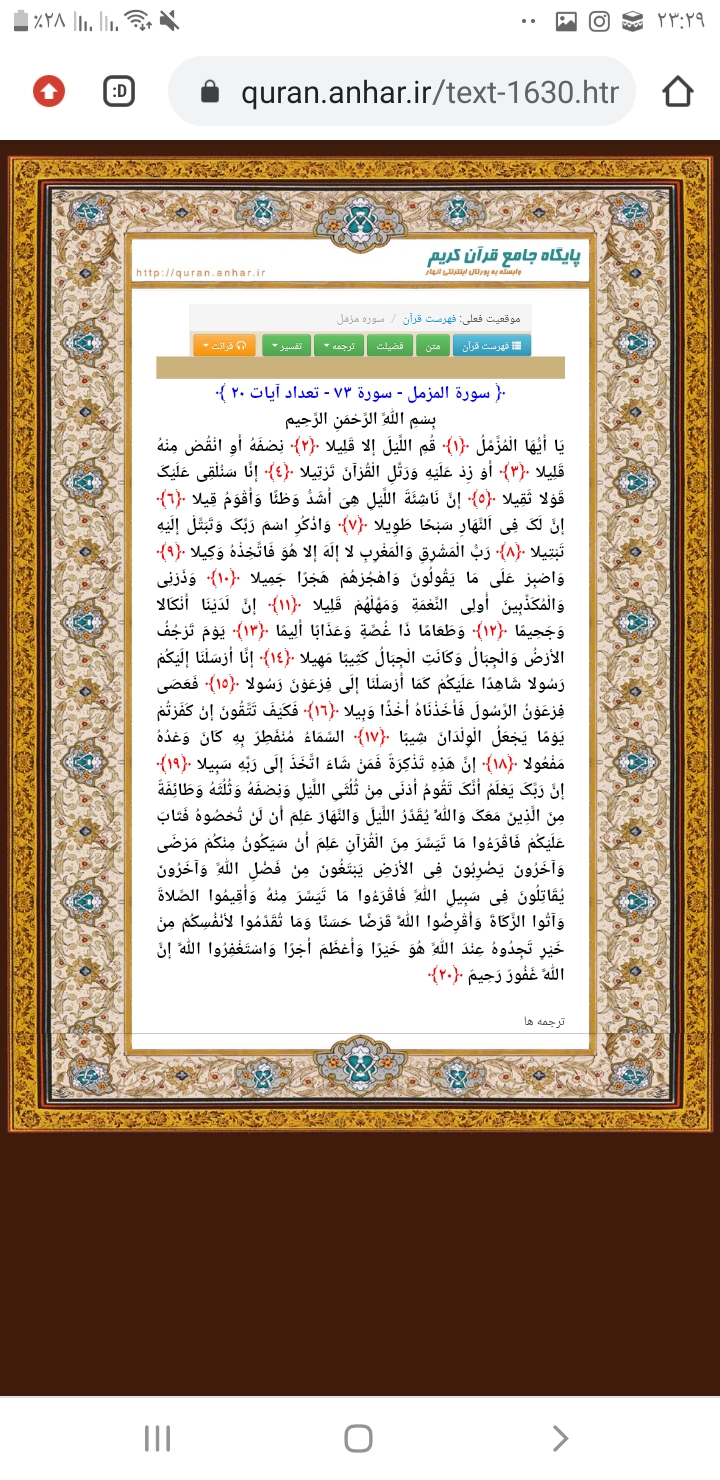 ٪۲۸ ۲۳:۲۹
:D quran.anhar.ir/text-1630.htr
پایگاه جامع قرآن کریم
وابسته به پورتال اینترنتی انهار
http://quran.anhar.ir
موقعیت فعلی: فهرست قرآن / سوره مزمّل
فهرست قرآن متن فضیلت ترجمه تفسیر قرائت
﴿ سورة المزمل - سورة ۷۳ - تعداد آیات ۲۰ ﴾
بِسْمِ اللَّهِ الرَّحْمَنِ الرَّحِیمِ
یَا أَیُّهَا الْمُزَّمِّلُ ﴿۱﴾ قُمِ اللَّیْلَ إِلا قَلِیلا ﴿۲﴾ نِصْفَهُ أَوِ انْقُصْ مِنْهُ
قَلِیلا ﴿۳﴾ أَوْ زِدْ عَلَیْهِ وَرَتِّلِ الْقُرْآنَ تَرْتِیلا ﴿٤﴾ إِنَّا سَنُلْقِی عَلَیْکَ
قَوْلا ثَقِیلا ﴿۵﴾ إِنَّ نَاشِئَةَ اللَّیْلِ هِیَ أَشَدُّ وَطْئًا وَأَقْوَمُ قِیلا ﴿٦﴾
إِنَّ لَکَ فِی اَلنَّهَارِ سَبْحًا طَوِیلا ﴿۷﴾ وَاذْکُرِ اسْمَ رَبِّکَ وَتَبَتَّلْ إِلَیْهِ
تَبْتِیلا ﴿۸﴾ رَبُّ الْمَشْرِقِ وَالْمَغْرِبِ لا إِلَهَ إِلا هُوَ فَاتَّخِذْهُ وَکِیلا ﴿۹﴾
وَاصْبِرْ عَلَى مَا یَقُولُونَ وَاهْجُرْهُمْ هَجْرًا جَمِیلا ﴿۱۰﴾ وَذَرْنِی
وَالْمُکَذِّبِینَ أُولِی النَّعْمَةِ وَمَهِّلْهُمْ قَلِیلا ﴿۱۱﴾ إِنَّ لَدَیْنَا أَنْکَالا
وَجَحِیمًا ﴿۱۲﴾ وَطَعَامًا ذَا غُصَّةٍ وَعَذَابًا أَلِیمًا ﴿۱۳﴾ یَوْمَ تَرْجُفُ
الأرْضُ وَالْجِبَالُ وَکَانَتِ الْجِبَالُ کَثِیبًا مَهِیلا ﴿۱٤﴾ إِنَّا أَرْسَلْنَا إِلَیْکُمْ
رَسُولا شَاهِدًا عَلَیْکُمْ کَمَا أَرْسَلْنَا إِلَى فِرْعَوْنَ رَسُولا ﴿۱۵﴾ فَعَصَى
فِرْعَوْنُ الرَّسُولَ فَأَخَذْنَاهُ أَخْذًا وَبِیلا ﴿۱٦﴾ فَکَیْفَ تَتَّقُونَ إِنْ کَفَرْتُمْ
یَوْمًا یَجْعَلُ الْوِلْدَانَ شِیبًا ﴿۱۷﴾ السَّمَاءُ مُنْفَطِرٌ بِهِ کَانَ وَعْدُهُ
مَفْعُولا ﴿۱۸﴾ إِنَّ هَذِهِ تَذْکِرَةٌ فَمَنْ شَاءَ اتَّخَذَ إِلَى رَبِّهِ سَبِیلا ﴿۱۹﴾
إِنَّ رَبَّکَ یَعْلَمُ أَنَّکَ تَقُومُ أَدْنَى مِنْ ثُلُثَیِ اللَّیْلِ وَنِصْفَهُ وَثُلُثَهُ وَطَائِفَةٌ
مِنَ الَّذِینَ مَعَکَ وَاللَّهُ یُقَدِّرُ اللَّیْلَ وَالنَّهَارَ عَلِمَ أَنْ لَنْ تُحْصُوهُ فَتَابَ
عَلَیْکُمْ فَاقْرَءُوا مَا تَیَسَّرَ مِنَ الْقُرْآنِ عَلِمَ أَنْ سَیَکُونُ مِنْکُمْ مَرْضَى
وَآخَرُونَ یَضْرِبُونَ فِی الأرْضِ یَبْتَغُونَ مِنْ فَضْلِ اللَّهِ وَآخَرُونَ
یُقَاتِلُونَ فِی سَبِیلِ اللَّهِ فَاقْرَءُوا مَا تَیَسَّرَ مِنْهُ وَأَقِیمُوا الصَّلاةَ
وَآتُوا الزَّکَاةَ وَأَقْرِضُوا اللَّهَ قَرْضًا حَسَنًا وَمَا تُقَدِّمُوا لأنْفُسِکُمْ مِنْ
خَیْرٍ تَجِدُوهُ عِنْدَ اللَّهِ هُوَ خَیْرًا وَأَعْظَمَ أَجْرًا وَاسْتَغْفِرُوا اللَّهَ إِنَّ
اللَّهَ غَفُورٌ رَحِیمٌ ﴿۲۰﴾
ترجمه ها